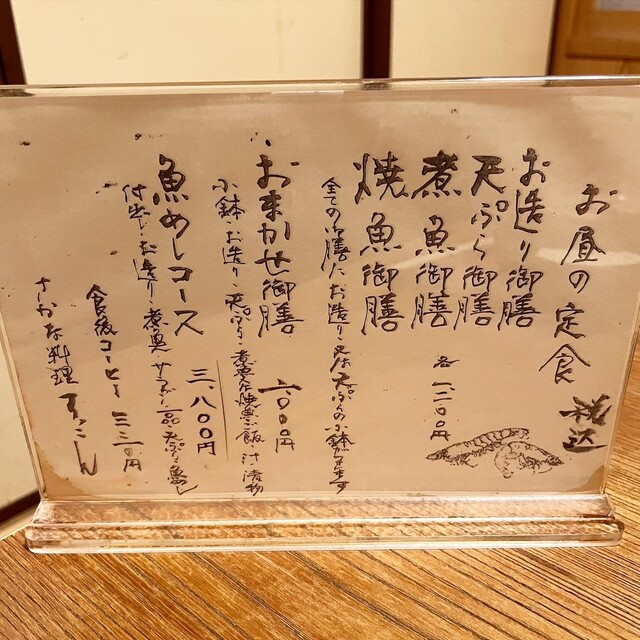 お昼の定食
税込
お造り御膳
天ぷら御膳
煮魚御膳
焼魚御膳
各 一、二〇〇円
全ての御膳に、お造り、又は天ぷらの小鉢が付きます
おまかせ御膳
二、〇〇〇円
小鉢、お造り、天ぷら、煮魚又は焼魚、御飯、汁、漬物
魚めしコース
三、八〇〇円
付出し、お造り、煮魚、サラダ、一品、天ぷら、魚めし
食後コーヒー 三三〇円
さかな料理